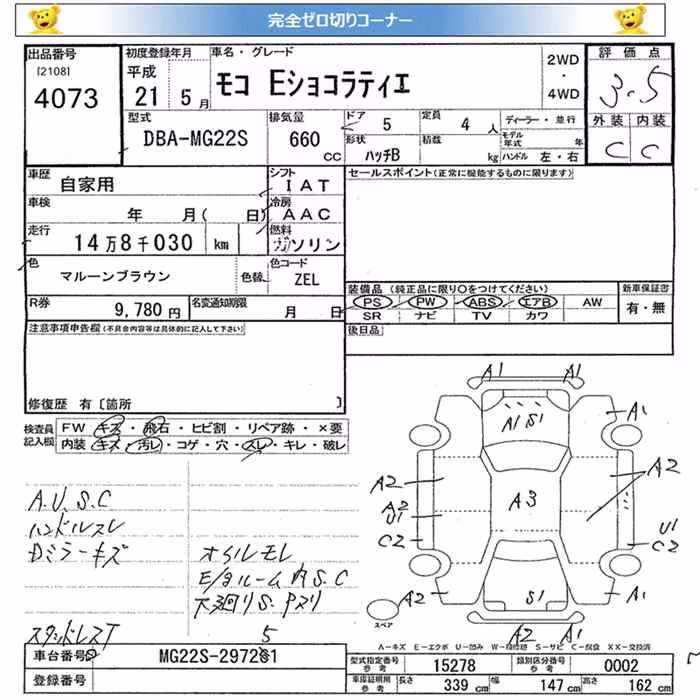 完全ゼロ切りコーナー
出品番号
[2108]
4073
初度登録年月
平成
21 年 5 月
車名・グレード
モコ Eショコラティエ
2WD
・
4WD
評価点
3.5
外装 内装
C C
型式
DBA-MG22S
排気量
660
CC
ドア
5
定員
4 人
形状
ハッチB
積載
kg
ディーラー・並行
モデル年式 年
ハンドル 左・右
車歴
自家用
シフト
IAT
車検
年 月( 日)
冷房
AAC
走行
14万8千030 km
燃料
ガソリン
色
マルーンブラウン
色替
色コード
ZEL
R券
9,780 円
名変通知期限
月 日
セールスポイント(正常に機能するものに限ります)
装備品 (純正品に限り〇をつけてください)
PS PW ABS エアB AW
SR ナビ TV カワ
新車保証書
有・無
後日品
注意事項申告欄(不具合内容等は具体的に記入して下さい)
修復歴 有〔箇所 〕
検査員記入欄
FW キズ・飛石・ヒビ割・リペア跡・×要
内装 キズ・汚レ・コゲ・穴・スレ・キレ・破レ
A.U.S.C
ハンドルスレ
Dミラーキズ
オイルモレ
E/gルーム内S.C
下廻りS.Pヌリ
スタッドレスT
A1 A1
A1 S1
A1
A2
A2
A3
A2
U1
C2
U1
C2
A2
S1
A1
A2 A1
スペア
A－キズ E－エクボ U－凹み W－補修跡 S－サビ C－腐食 XX－交換済
車台番号
MG22S-297281
5
登録番号
型式指定番号
参考
15278
類別区分番号
参考
0002
車庫証明用
参考
長さ
339 cm
幅
147 cm
高さ
162 cm